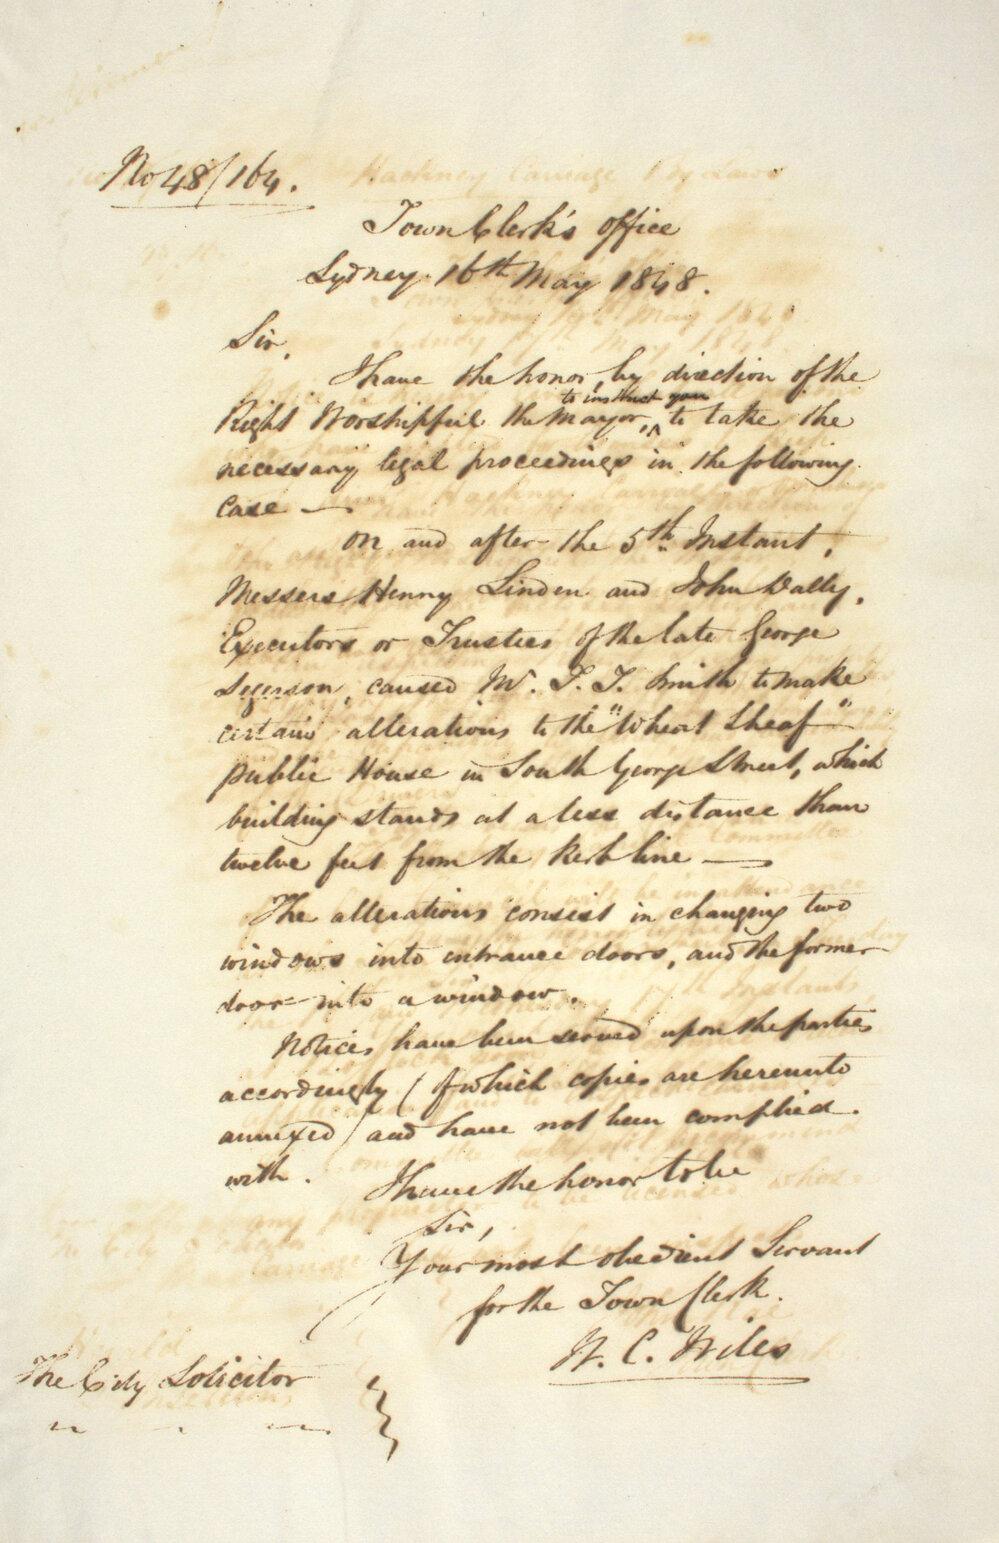 No 48/164.
Town Clerk's Office
Sydney 16th May 1848.
Sir,
I have the honor, by direction of the
Right Worshipful the Mayor, to instruct you to take the
necessary legal proceedings in the following
Case —
On and after the 5th Instant,
Messers Henry Linden and John Dally,
Executors or Trustees of the late George
caused Mr. T. Smith to make
certain alterations to the "Wheat Sheaf"
public House in South George Street, which
building stands at a less distance than
twelve feet from the Kerb line —
The alterations consist in changing two
windows into entrance doors, and the former
door into a window.
Notices have been served upon the parties
accordingly (of which copies are hereunto
annexed) and have not been complied
with.
I have the honor to be
Sir,
Your most obedient Servant
for the Town Clerk.
W. C. Wiles
The City Solicitor